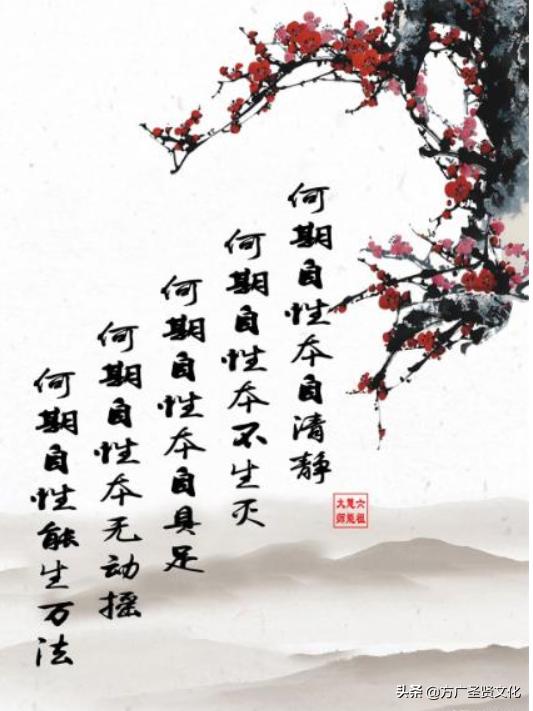 何期自性本自清静
何期自性本不生灭
何期自性本自具足
何期自性本无动摇
何期自性能生万法
六祖慧能大师
头条 @方广圣贤文化